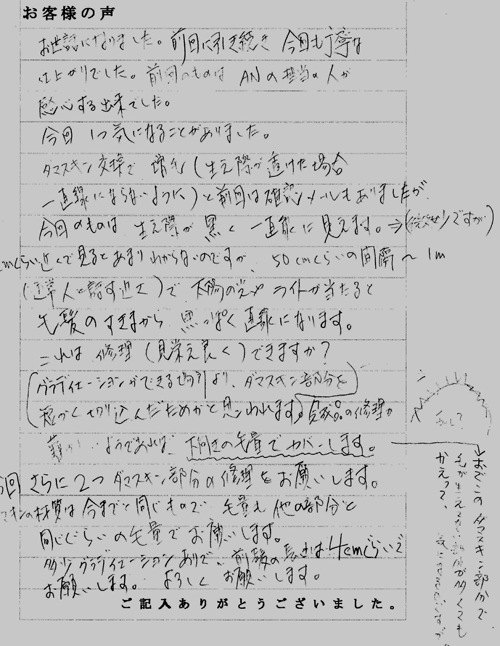 お客様の声
お世話になりました。前回に引き続き 今回も丁寧な
仕上がりでした。前回のものは ANの担当の人が
感心する出来でした。
今回 1つ気になることがありました。
ダマスキン交換で 増毛(生え際が透けた場合
一直線にならないように)と前回は確認メールもありましたが
今回のものは 生え際が 黒く 一直線に見えます。⇒(微妙ですが)
cmくらい近くで見るとあまりわからないのですが、50cmくらいの間隔〜1m
(通常人と話す近さ)で、太陽の光や ライトが当たると
毛髪のすきまから 黒っぽく直線になります。
これは 修理(見栄え良く)できますか?
(グラディエーションができる場所より、ダマスキン部分を
切り込んだためかと思われます。)の修理が
ようであれば 下向きの毛量でカバーします。
今回 さらに2つ ダマスキン部分の修理をお願いします。
スキンの材質は 今までと同じもので、毛量も 他の部分と
同じぐらいの毛量でお願いします。
多少グラディエーションありで、前髪の長さは4cmぐらいで
お願いします。 よろしく お願いします。
ご記入ありがとうございました。
おでこのダマスキン部分で
毛が生えている部分が多くても
かえって、